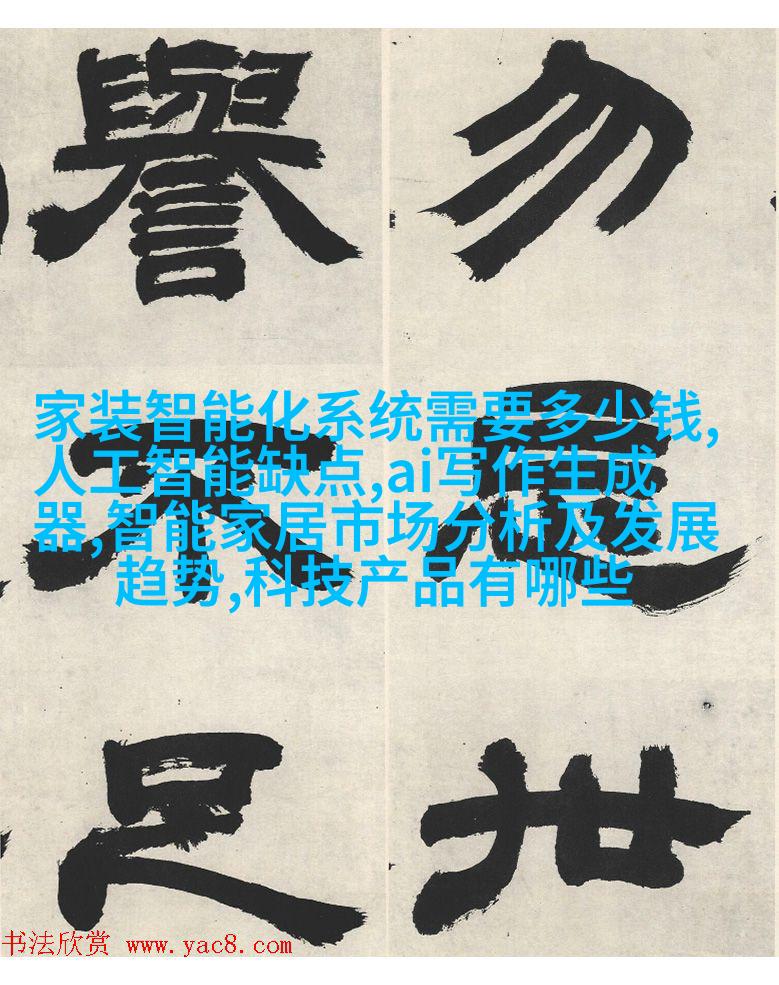 勿
世
譽不足
家装智能化系统需要多少钱,
人工智能缺点,ai写作生成
器,智能家居市场分析及发展
趋势,科技产品有哪些
书法欣赏 www.yac8.com